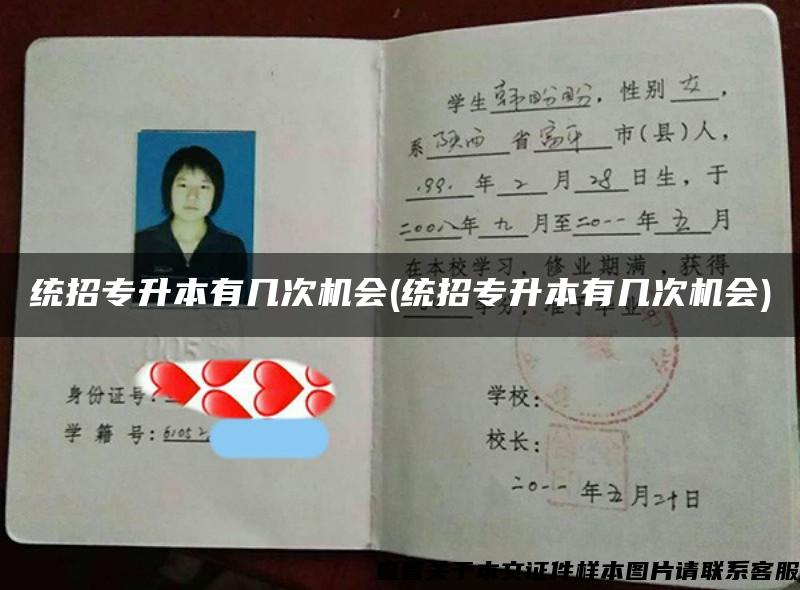 学生韩盼盼，性别女，
系陕西省富平市(县)人，
1991年2月28日生，于
二00八年九月至二0一一年五月
在本校学习，修业期满，获得
学分，准予毕业。
统招专升本有几次机会(统招专升本有几次机会)
005
身份证号：
学籍号：61052
学校：
校长：
二0一一年五月二十日
查看关于本文证件样本图片请联系客服